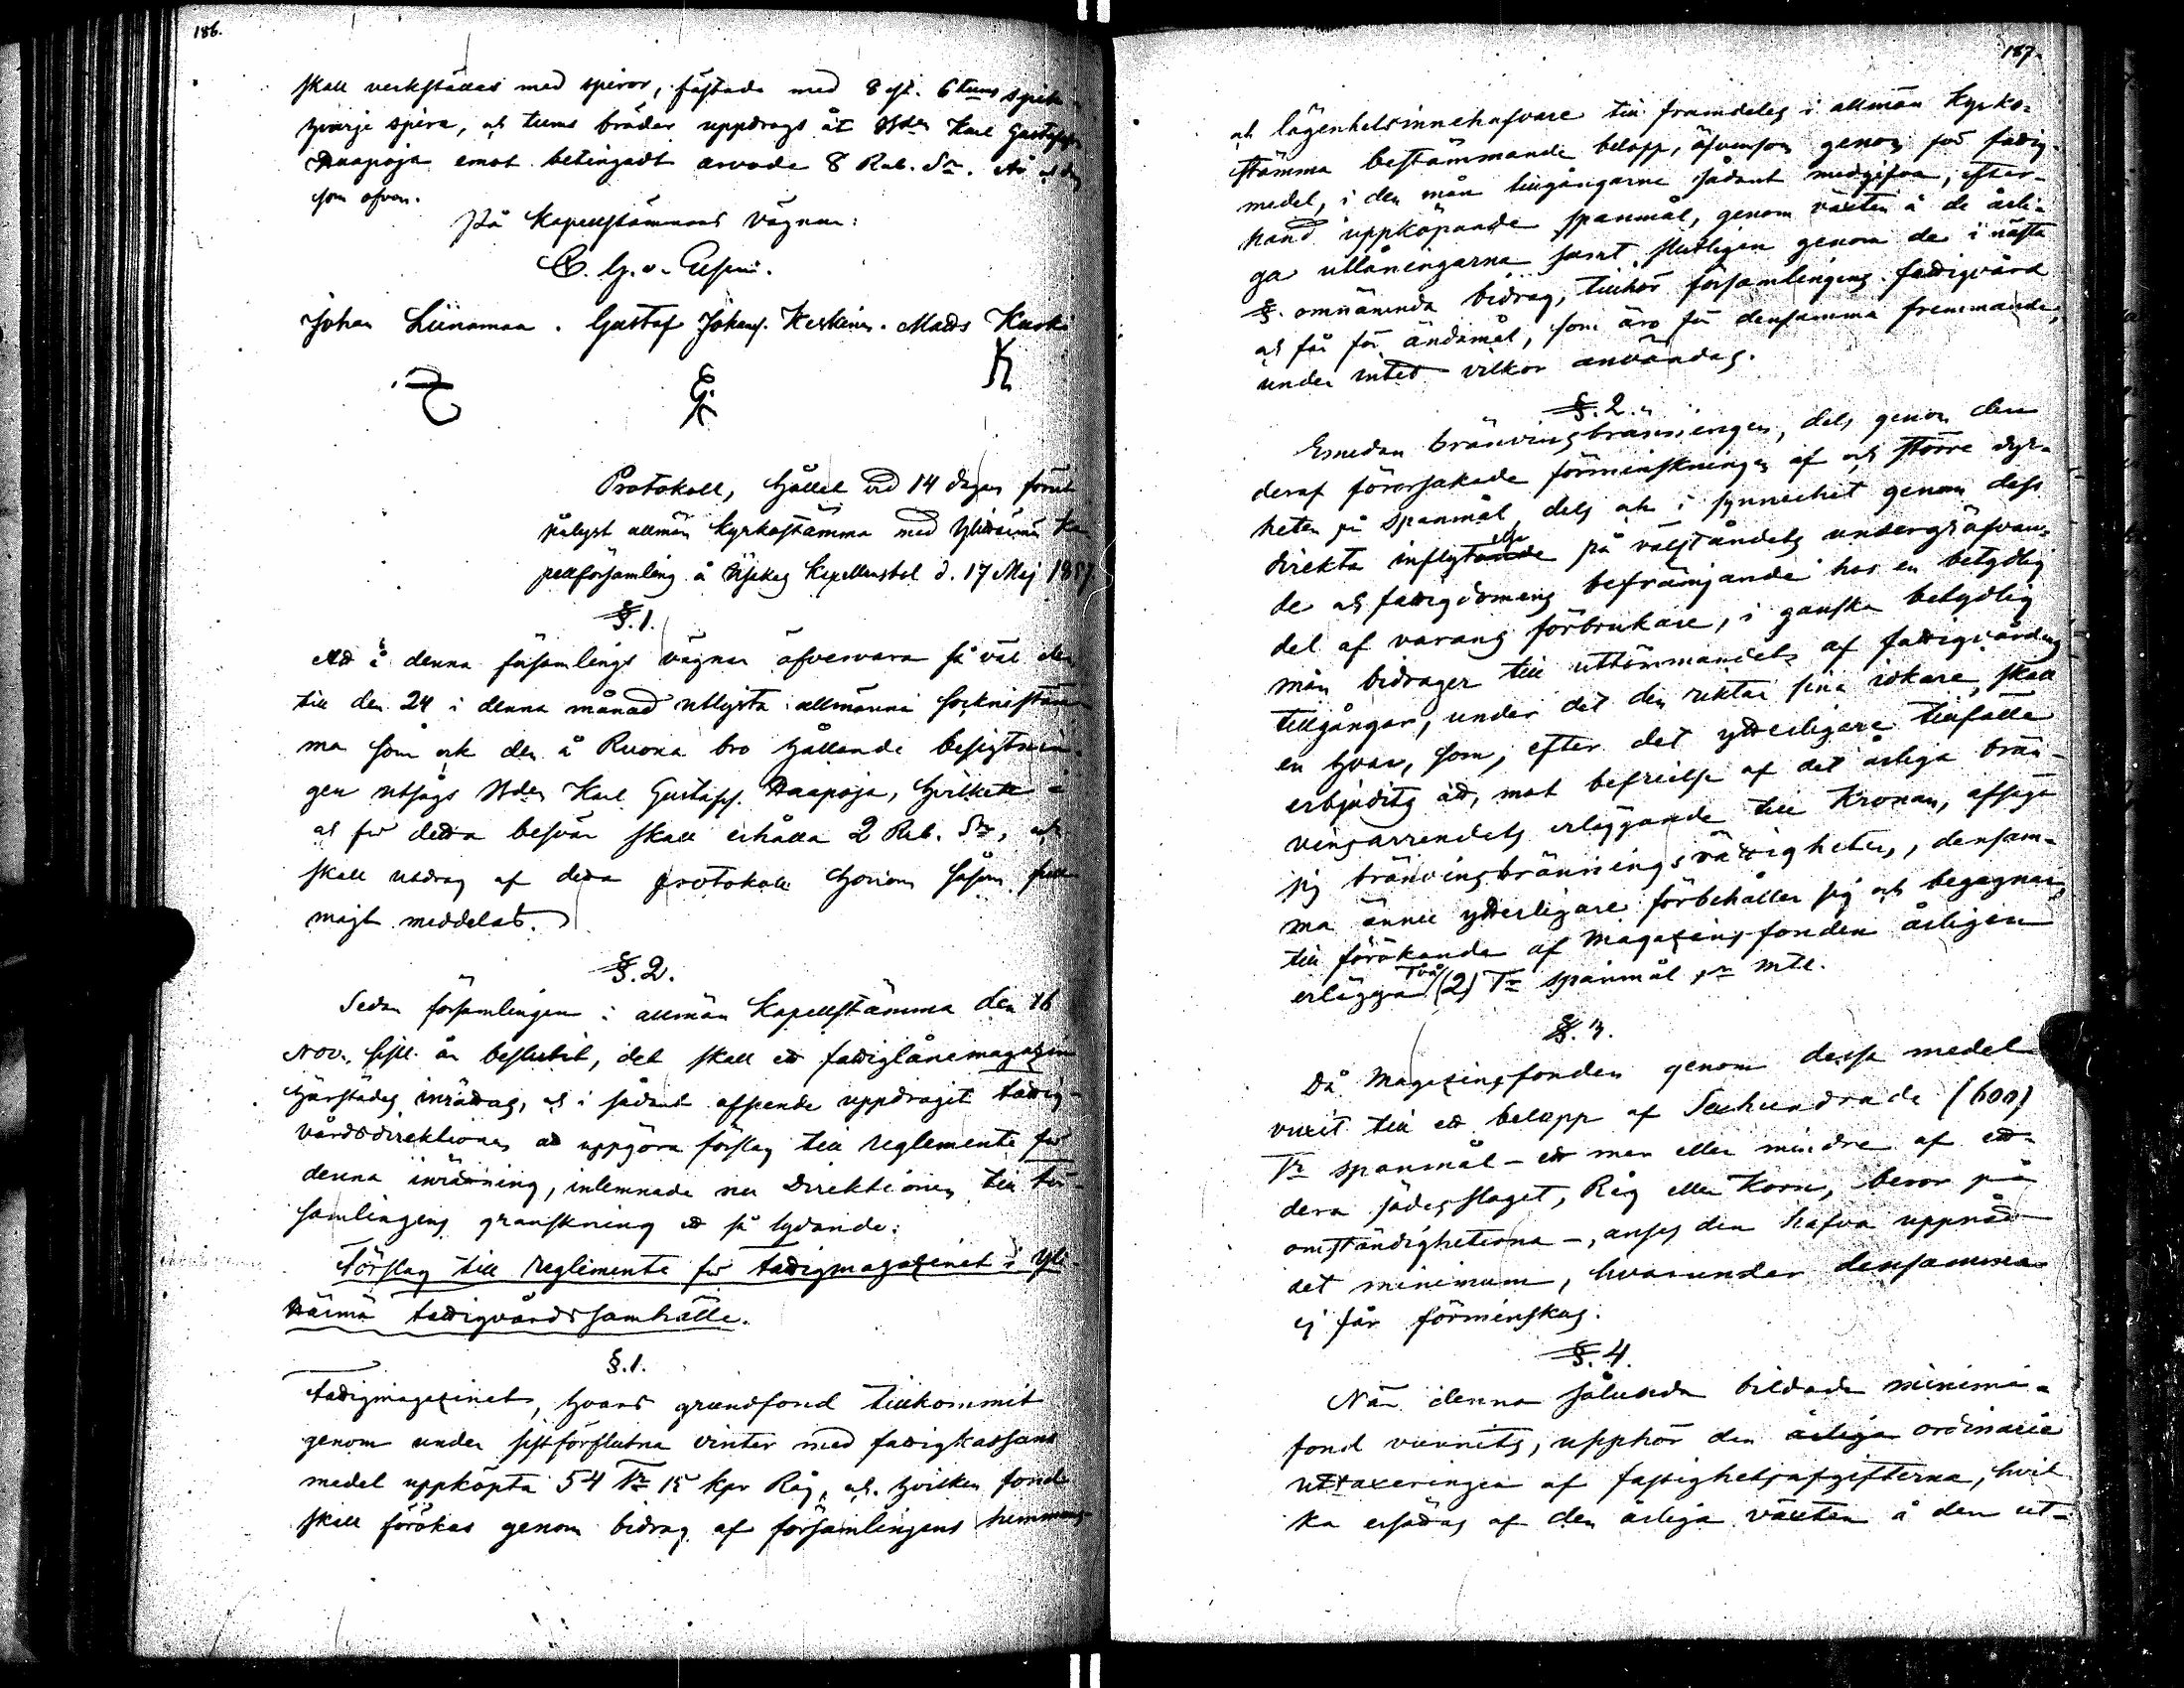 186.
skall verkställas med spiror, fästade med 8 st. 6 tums spik i
hvarje spira, och tums bräder uppdrogs åt Bden Karl Gustafss.
Haapoja emot betingadt arvode 8 Rub. Sr. År och dag
som ofvan.
På Kapellstämmans vägnar:
Johan Liinamaa. Gustaf Johanss. Keskinen. Matts Kuoki
K
Protokoll, hållet vid 14 dagar förut
pålyst allmän Kyrkostämma med Ylihärmä Ka-
pellförsamling å Ylikylä Kapellansbol d. 17 Maj 1857.
§. 1.
Att å denna församlings vägnar öfvervara så väl den
till den 24 i denna månad utlysta allmänna sockenstäm-
ma som ock den å Ruona bro hållande besigtnin-
gen utsågs Bden Karl Gustafss. Haapoja, hvilken
och för detta besvär skall erhålla 2 Rub. Sr, och
skall utdrag af detta protokoll honom såsom full-
magt meddelas.
§. 2.
Sedan församlingen i allmän Kapellstämma den 16
Nov. sistl. år beslutit, det skall ett fattiglånemagazin
härstädes inrättas, och i sådant afseende uppdragit fattig-
vårdsdirektionen att uppgöra förslag till reglemente för
denna inrättning, inlemnade nu Direktionen till för-
samlingens granskning ett så lydande:
Förslag till reglemente för fattigmagazinet i Yli-
härmä fattigvårdssamhälle.
§. 1.
Fattigmagazinet, hvars grundfond tillkommit
genom under sistförflutna vinter med fattigkassans
medel uppköpta 54 Tr 15 kpr Råg, och hvilken fond
skall förökas genom bidrag af församlingens hemmans-
187.
och lägenhetsinnehafvare till framdeles i allmän Kyrko-
stämma bestämmande belopp, äfvensom genom för fattig-
medel, i den mån tillgångarne sådant medgifva, efter-
hand uppköpande spanmål, genom växten å de årli-
ga utlåningarna samt slutligen genom de i nästa
§. omnämnda bidrag, tillhör församlingens fattigvård
och får för ändamål, som äro för densamma fremmande,
under intet vilkor användas.
§. 2.
Emedan bränvinsbränningen, dels genom den
deraf förorsakade förminskningen af och större dyr-
heten på spanmål dels och i synnerhet genom dess
direkta inflytande else på välståndets undergräfvan-
de och fattigdomens befrämjande hos en betydlig
del af varans förbrukare, i ganska betydlig
mån bidrager till uttömmandet af fattigvårdens
tillgångar, under det den riktar sina idkare, skall
en hvar, som, efter det ytterligare tillfälle
erbjudits att, mot befrielse af det årliga brän-
vinsarrendets erläggande till Kronan, afsäga
sig bränvinsbränningsrättigheten, densam-
ma ännu ytterligare förbehåller sig och begagnar,
till förökande af Magazinsfonden årligen
erlägga Två (2) Tr spanmål pr mtl.
§. 3.
Då Magazinsfonden genom dessa medel
vuxit till ett belopp af Sexhundrade (600)
Tr spanmål – ett mer eller mindre af ett-
dera sädesslaget, Råg eller Korn, beror på
omständigheterna –, anses den hafva uppnått
det minimum, hvarunder densamma
ej får förminskas.
§. 4.
När denna sålunda bildade minimi-
fond vunnits, upphör den årliga ordinarie
uttaxeringen af fastighetsafgifterna, hvil
ka ersättas af den årliga växten å den ut-